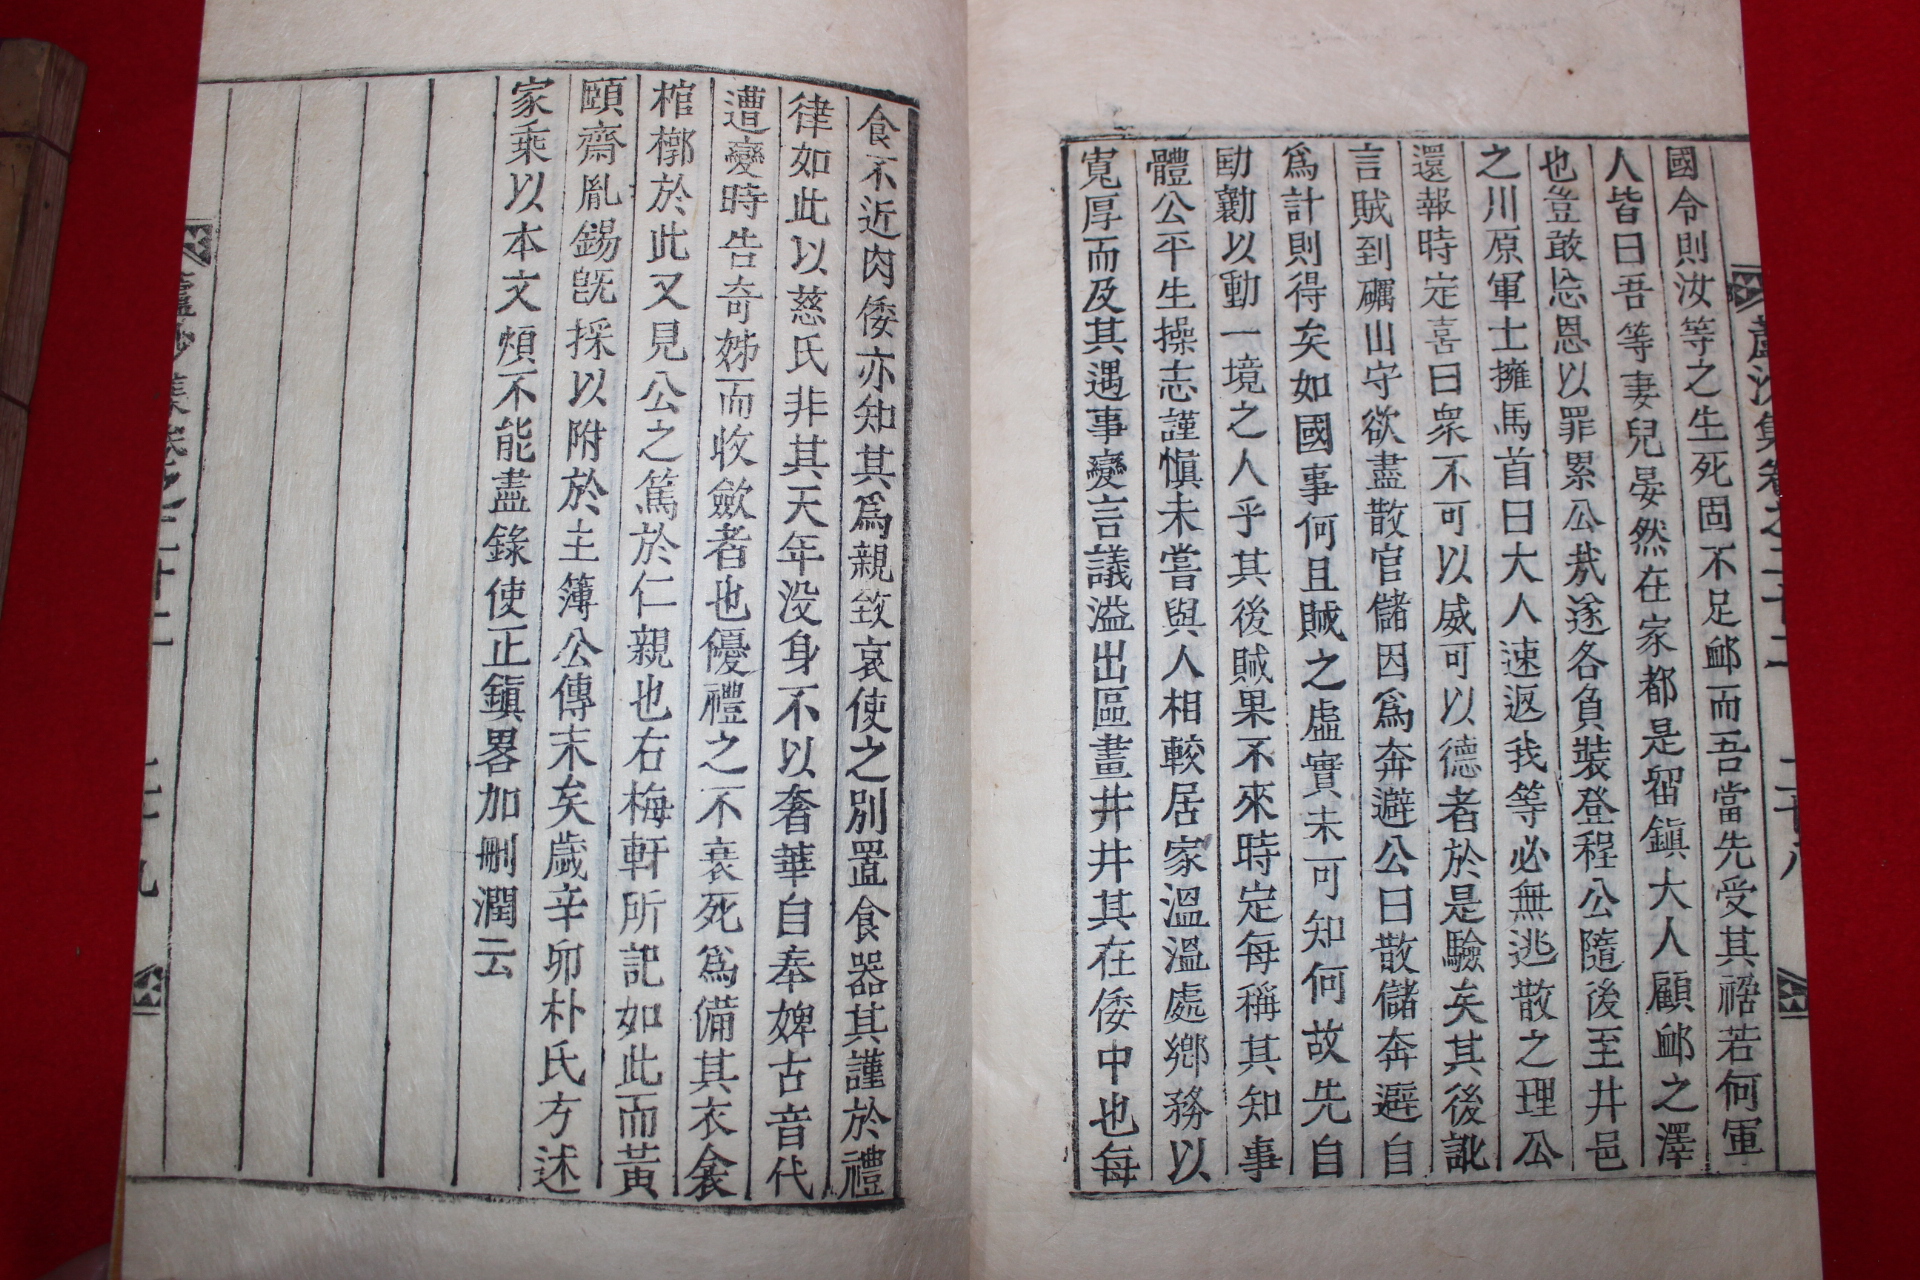 國令則汝等之生死固不足衈而吾當先受其禍若何軍
人皆曰吾等妻兒晏然在家都是留鎮大人顧衈之澤
也豈敢忘恩以罪累公㢤遂各負裝登程公隨後至井邑
之川原軍士擁馬首曰大人速返我等必無逃散之理公
還報時定喜曰衆不可以威可以德者於是驗矣其後訛
言賊到礪山守欲盡散官儲因爲奔避公曰散儲奔避自
爲計則得矣如國事何且賊之虛實未可知何故先自
劻勷以動一境之人乎其後賊果不來時定每稱其知事
體公平生操志謹愼未嘗與人相較居家溫溫處鄕務以
寬厚而及其遇事變言議溢出區畫井井其在倭中也每
食不近肉倭亦知其爲親致哀使之別置食器其謹於禮
律如此以慈氏非其天年没身不以奢華自奉婢古音代
遭變時告奇姊而收斂者也優禮之不衰死爲備其衣衾
棺槨於此又見公之篤於仁親也右梅軒所記如此而黃
頤齋胤錫旣採以附於主簿公傳末矣歲辛卯朴氏方述
家乘以本文煩不能盡錄使正鎭畧加刪潤云